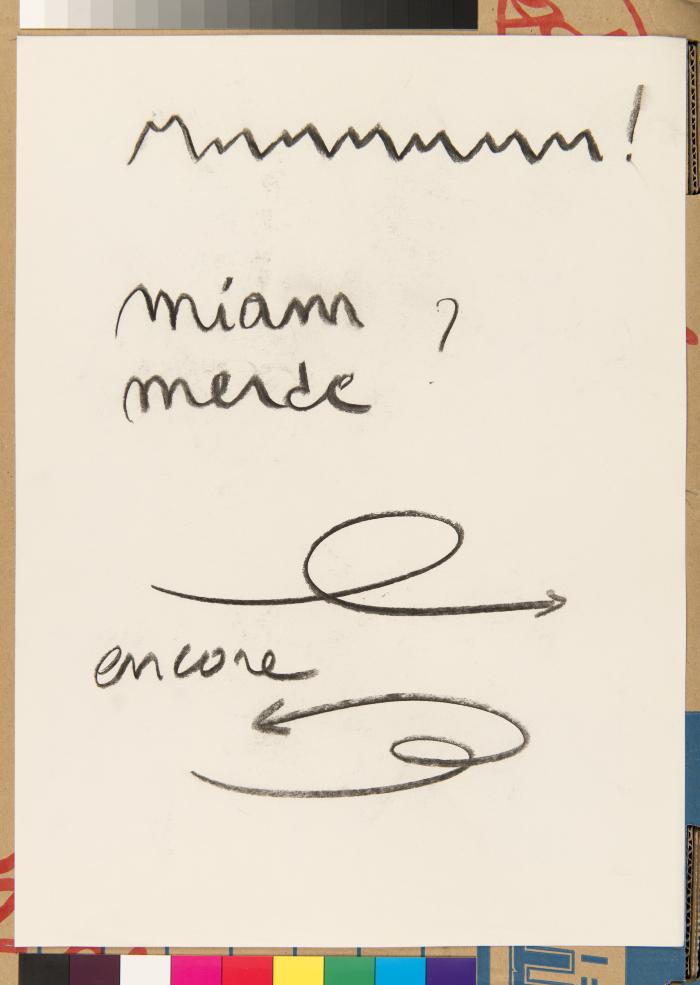 Mmmmmmmm!
miam ?
merde
encore